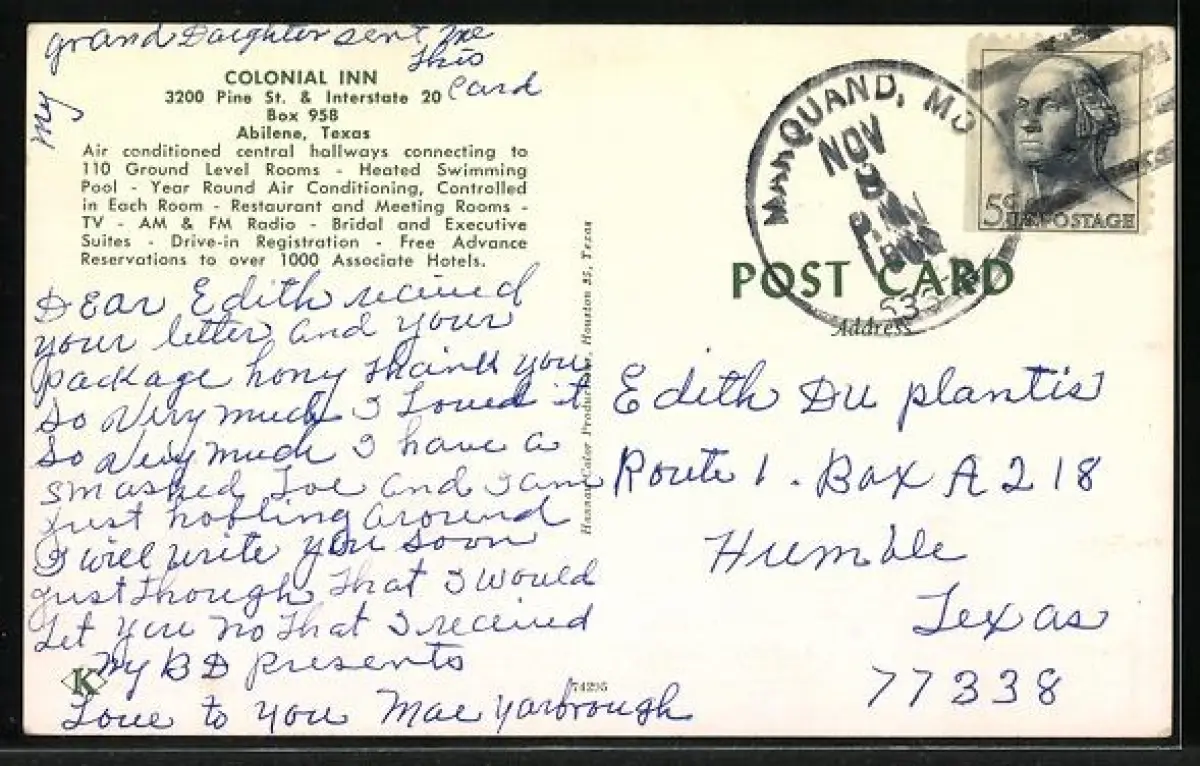 My grand Daughter sent me
this
card
COLONIAL INN
3200 Pine St. & Interstate 20
Box 958
Abilene, Texas
Air conditioned central hallways connecting to
110 Ground Level Rooms - Heated Swimming
Pool - Year Round Air Conditioning, Controlled
in Each Room - Restaurant and Meeting Rooms -
TV - AM & FM Radio - Bridal and Executive
Suites - Drive-in Registration - Free Advance
Reservations to over 1000 Associate Hotels.
Dear Edith recieved
your letter and your
package hony thank you
so very much I Loved it
so very much I have a
smashed Toe and I am
just hobling around
I will write you soon
just though that I would
Let you no that I received
My BD presents
Love to you Mae yarbrough
K
74295
Hannau Color Productions, Houston 35, Texas
MARQUAND, MO
NOV
PM
5¢ U.S. POSTAGE
POST CARD
Address
Edith Du plantis
Route 1. Box A 218
Humble
Texas
77338